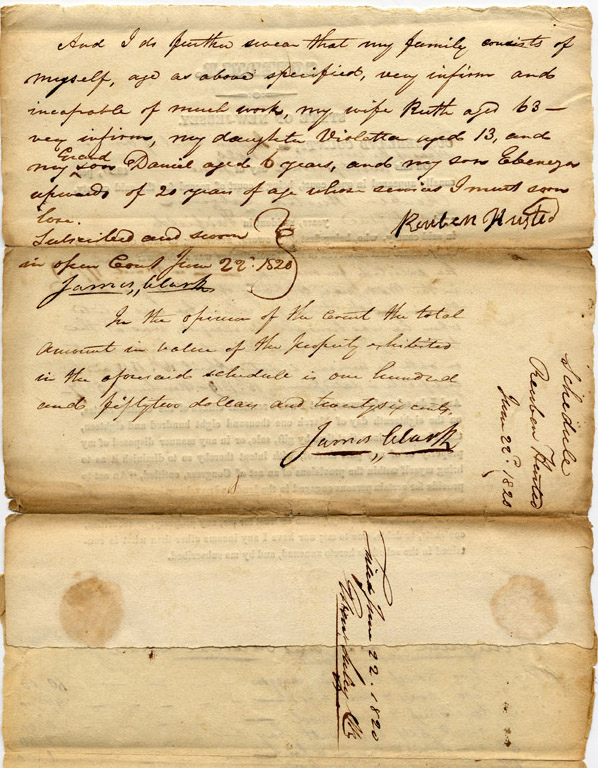 And I do further swear that my family consists of
myself, age as above specified, very infirm and
incapable of much work, my wife Ruth aged 63 —
very infirm, my daughter Violetta aged 13, and
my Grand son Daniel aged 6 years, and my son Ebenezer
upwards of 20 years of age whose services I must soon
lose.
Reuben Husted
Subscribed and sworn
in open Court June 22d. 1820
James Clark
In the opinion of the Court the total
amount in value of the property exhibited
in the aforesaid schedule is one hundred
and fifty two dollars and twenty six cents.
James Clark
Schedule
Reuben Husted
June 22d. 1820
Filed June 22. 1820
Clk